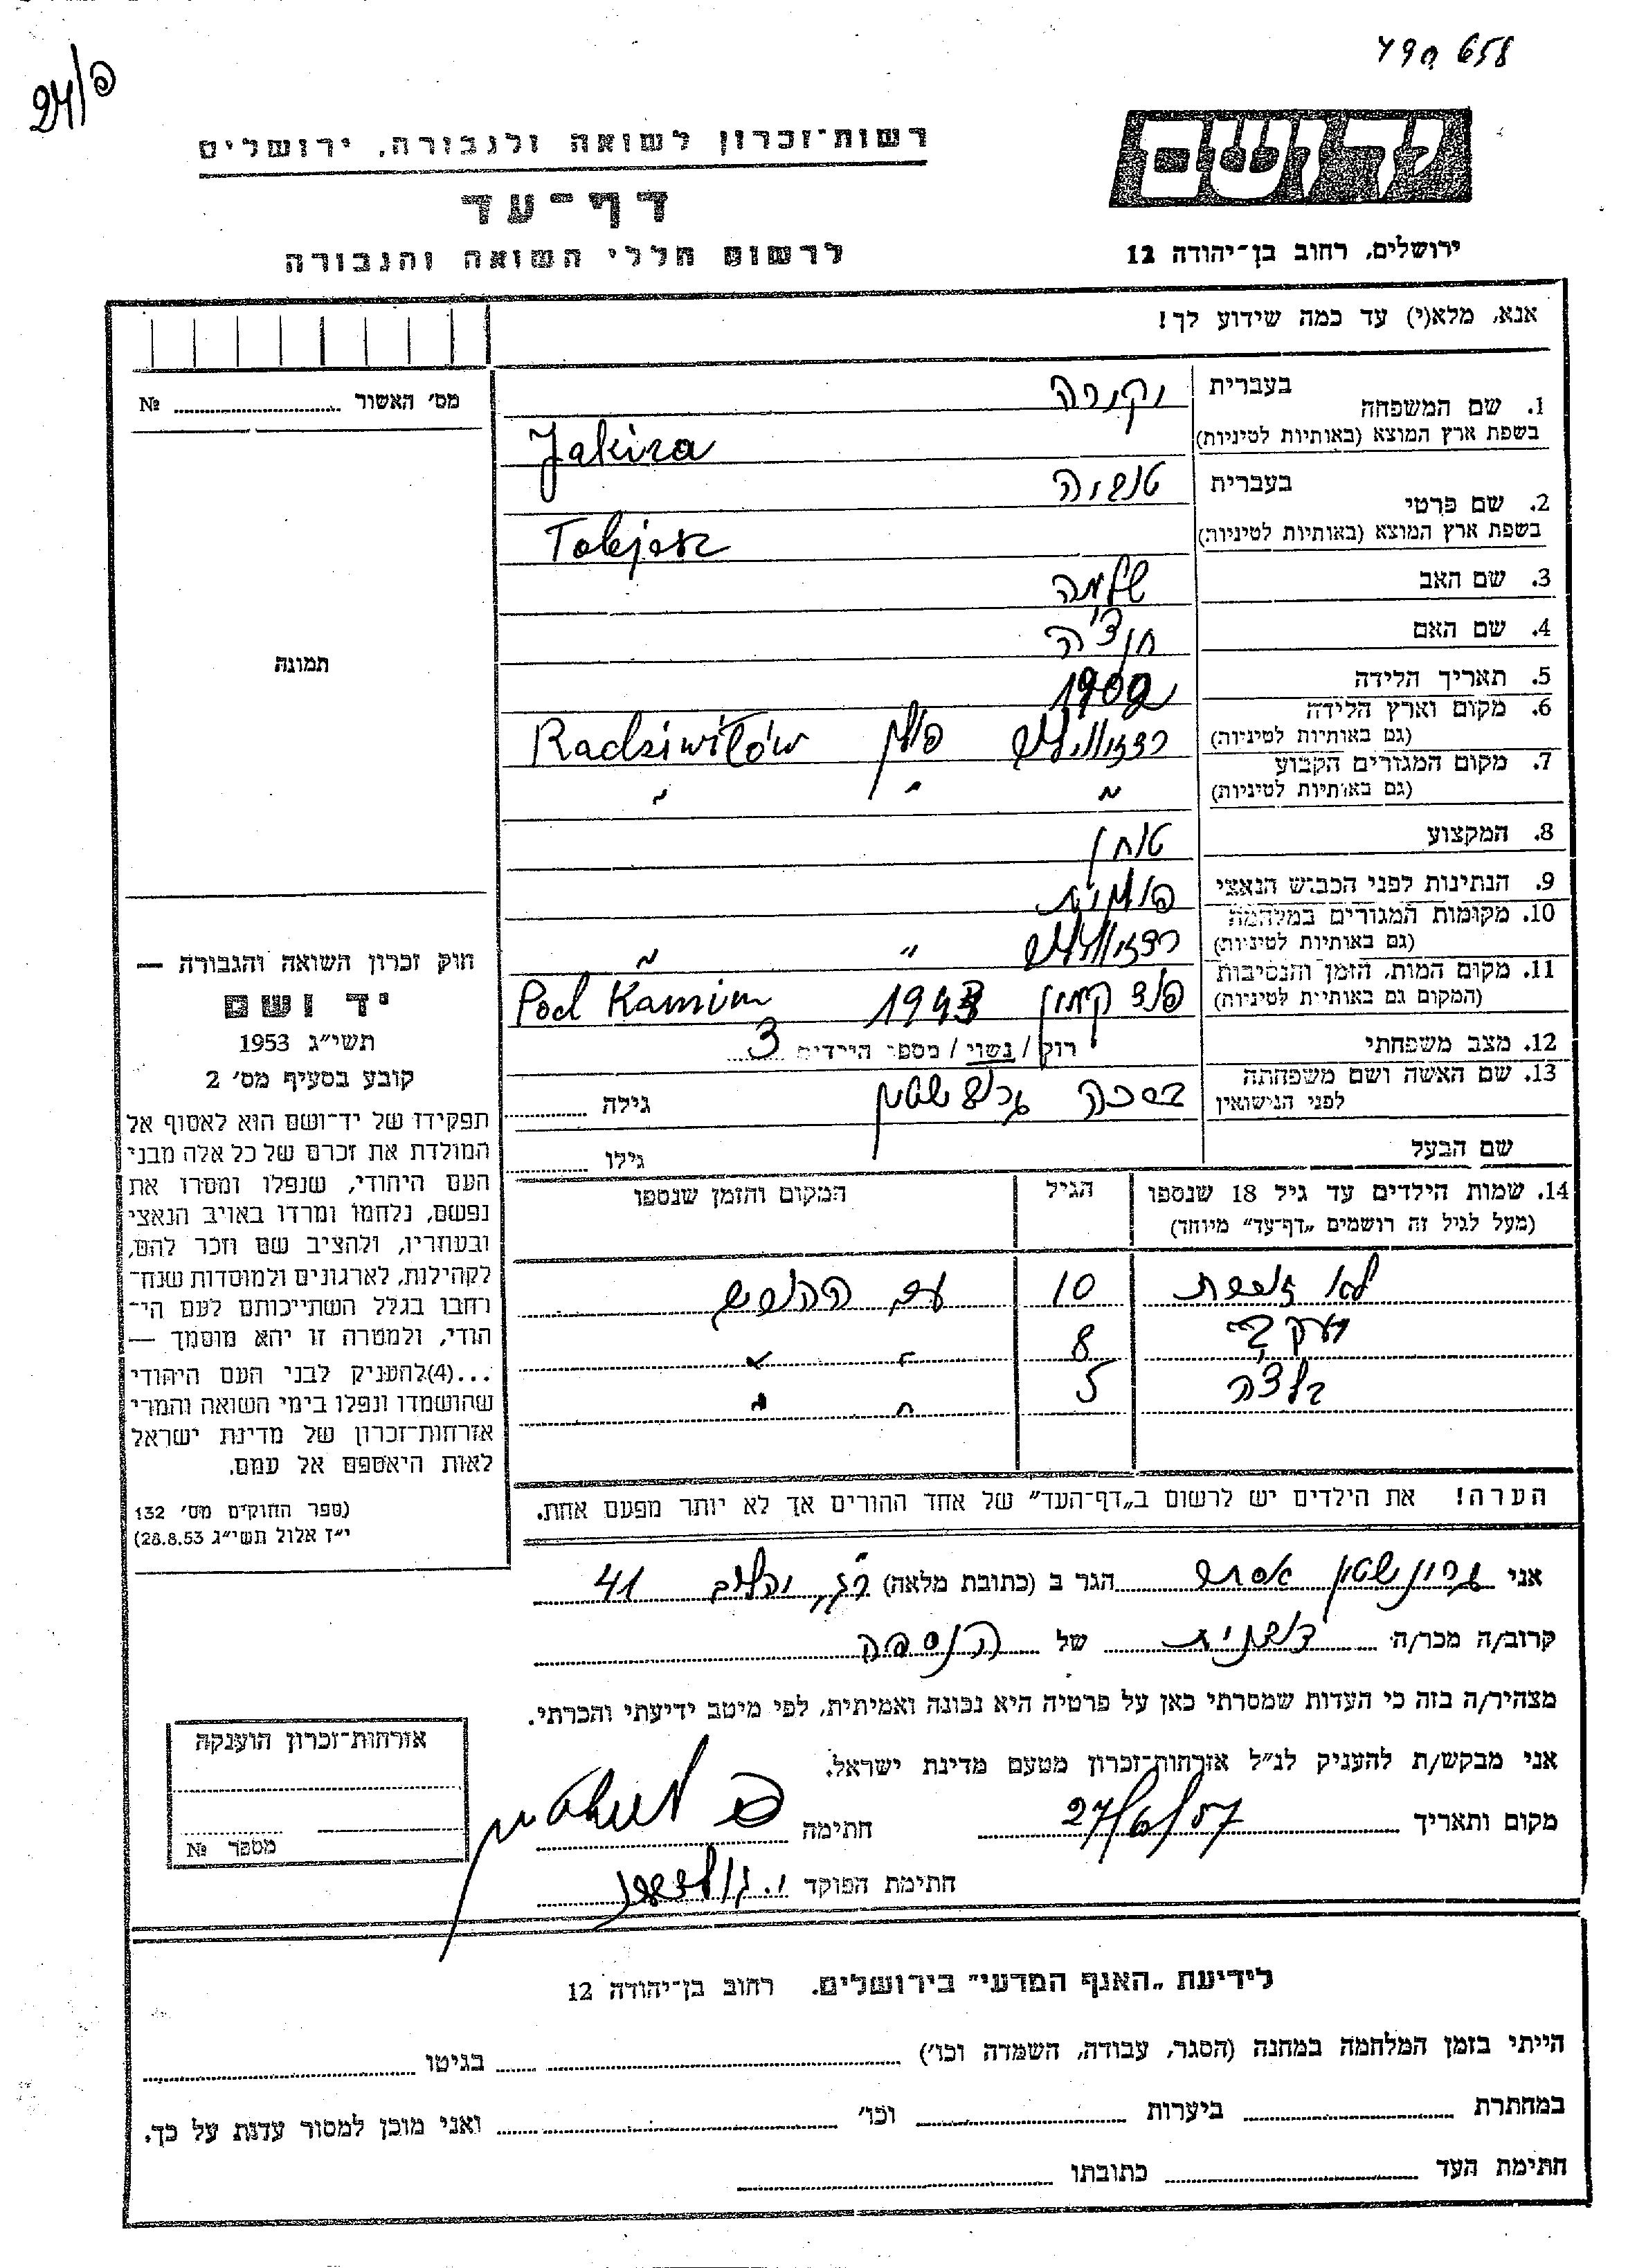 658
24/פ
יד ושם
ירושלים, רחוב בן־יהודה 12
רשות־זכרון לשואה ולגבורה, ירושלים
דף־עד
לרשום חללי השואה והגבורה
אנא, מלא(י) עד כמה שידוע לך!
מס׳ האשור № 
תמונה
חוק זכרון השואה והגבורה —
יד ושם
תשי״ג 1953
קובע בסעיף מס׳ 2
תפקידו של יד־ושם הוא לאסוף אל
המולדת את זכרם של כל אלה מבני
העם היהודי, שנפלו ומסרו את
נפשם, נלחמו ומרדו באויב הנאצי
ובעוזריו, ולהציב שם וזכר להם,
לקהילות, לארגונים ולמוסדות שנח־
רחבו בגלל השתייכותם לעם הי־
הודי, ולמטרה זו יהא מוסמך —
...(4) להעניק לבני העם היהודי
שהושמדו ונפלו בימי השואה והמרי
אזרחות־זכרון של מדינת ישראל
לאות היאספם אל עמם.
(ספר החוקים מס׳ 132
י״ז אלול תשי״ג 28.8.53)
1. שם המשפחה בעברית
בשפת ארץ המוצא (באותיות לטיניות) Jakira
2. שם פרטי בעברית טוביה
בשפת ארץ המוצא (באותיות לטיניות)
3. שם האב שלמה
4. שם האם
5. תאריך הלידה
6. מקום וארץ הלידה (גם באותיות לטיניות) פולין Radziwiłłów
7. מקום המגורים הקבוע (גם באותיות לטיניות) " " "
8. המקצוע טוחן
9. הנתינות לפני הכבוש הנאצי פולנית
10. מקומות המגורים במלחמה (גם באותיות לטיניות) " "
11. מקום המות, הזמן והנסיבות (המקום גם באותיות לטיניות) 1943 Pod Kamim
12. מצב משפחתי רווק / נשוי / מספר הילדים 3
13. שם האשה ושם משפחתה לפני הנישואין גילה
שם הבעל גילו
14. שמות הילדים עד גיל 18 שנספו (מעל לגיל זה רושמים „דף־עד״ מיוחד) הגיל המקום והזמן שנספו
לא 10 עם
יעקב 8 " "
5 " "
הערה! את הילדים יש לרשום ב„דף־העד״ של אחד ההורים אך לא יותר מפעם אחת.
אני אסתר הגר ב (כתובת מלאה) 41
קרוב/ה מכר/ה של הנספה
מצהיר/ה בזה כי העדות שמסרתי כאן על פרטיה היא נכונה ואמיתית, לפי מיטב ידיעתי והכרתי.
אני מבקש/ת להעניק לנ״ל אזרחות־זכרון מטעם מדינת ישראל.
מקום ותאריך 27/6/57 חתימה
חתימת הפוקד
אזרחות־זכרון הוענקה
מספר №
לידיעת „האגף המדעי״ בירושלים. רחוב בן־יהודה 12
הייתי בזמן המלחמה במחנה (הסגר, עבודה, השמדה וכו׳) בגיטו
במחתרת ביערות וכו׳ ואני מוכן למסור עדות על כך.
חתימת העד כתובתו